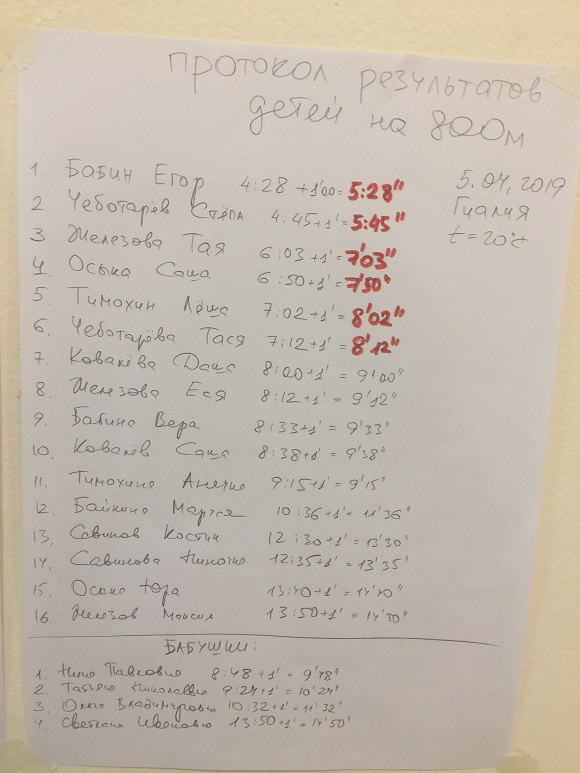 протокол результатов
детей на 800м
5.04.2019
t=20°c
1. Бабин Егор 4:28+1'00=5:28"
2 Чеботарёв Стёпа 4:45+1'=5:45"
3. Железова Тая 6:03+1'=7'03"
4. Осыка Саша 6:50+1'=7'50"
5. Тимохин Лёша 7:02+1'=8'02"
6. Чеботарёва Тася 7:12+1'=8'12"
7. Ковалёва Даша 8:00+1'=9'00"
8. Железова Еся 8:12+1'=9'12"
9. Бабина Вера 8:33+1'=9'33"
10. Ковалёв Саша 8:38+1'=9'38"
11. Тимохина 9:15+1'=9'15"
12. Байкина Марчея 10:36+1'=11'36"
13. Савинов Костик 12:30+1'=13'30"
14. Савинова Ниночка 12:35+1'=13'35"
15. Осыка Юра 13:40+1'=14'40"
16. Железов Максим 13:50+1'=14'50"
БАБУШКИ:
1. Нина Павловна 8:48+1'=9'48"
2. Татьяна Николаевна 9:24+1'=10'24"
3. Ольга Владимировна 10:32+1'=11'32"
4. Светлана Ивановна 13:50+1'=14'50"